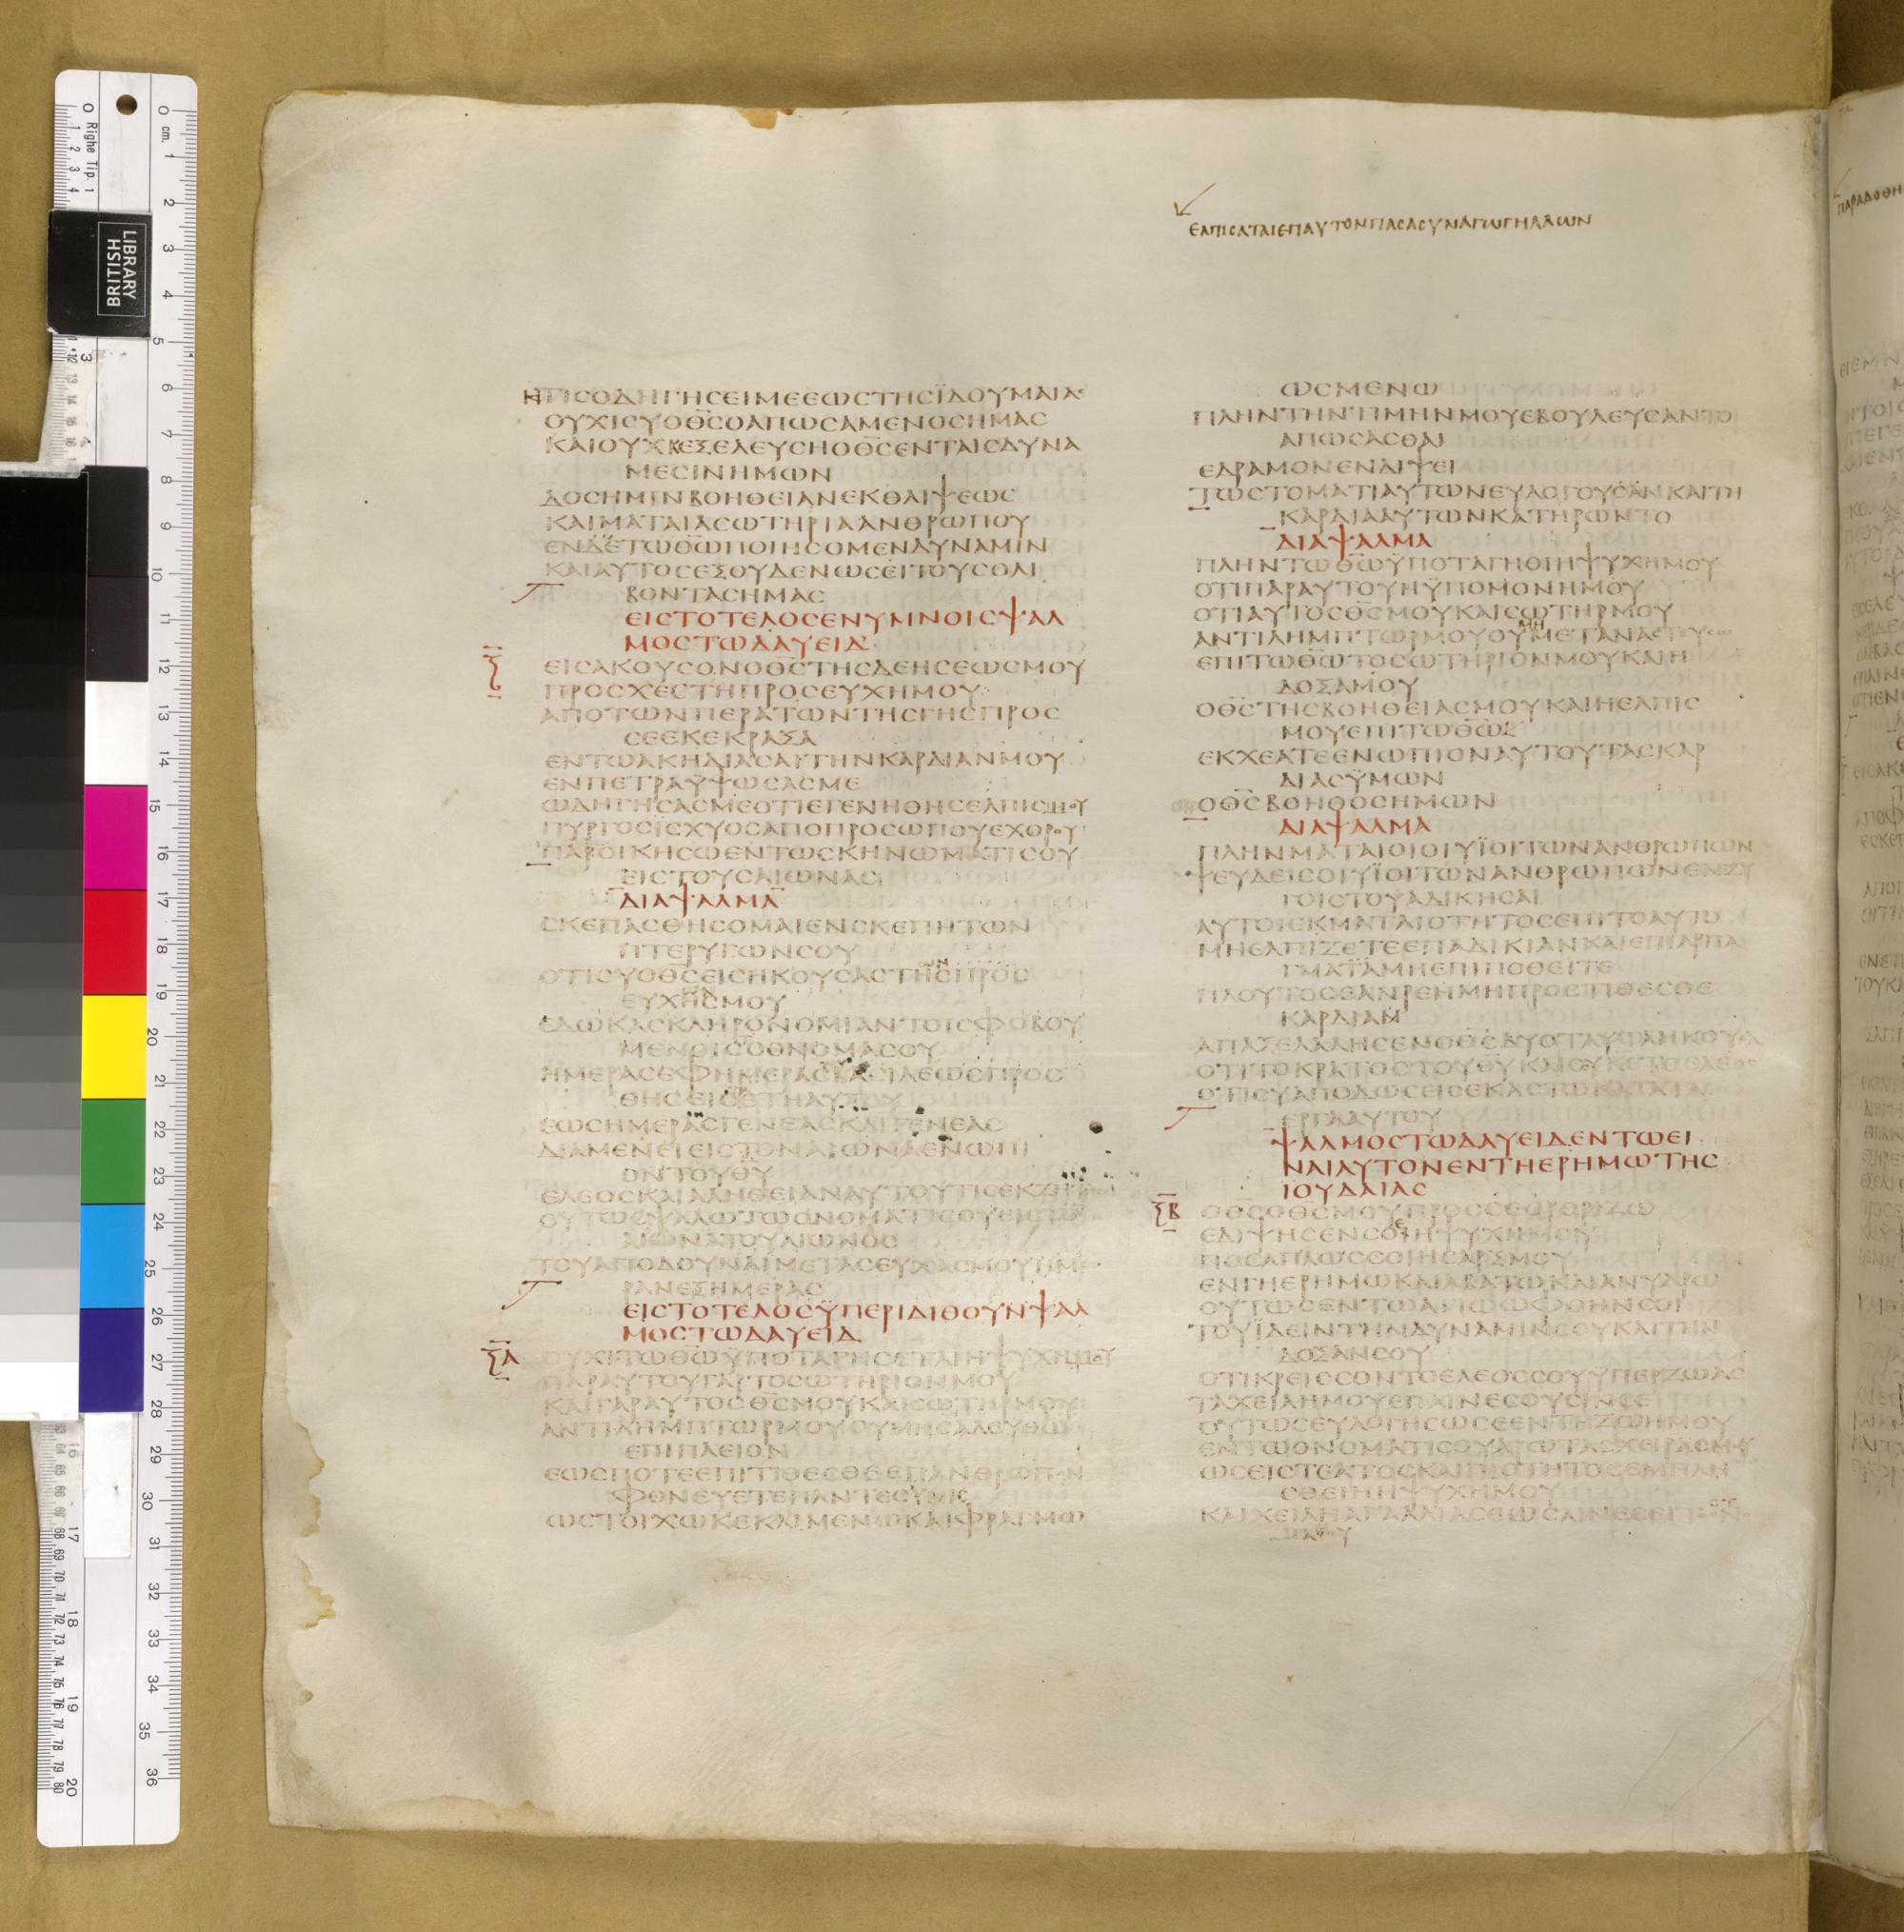 ΕΛΠΙΣΑΤΑΙΕΠΑΥΤΟΝΠΑΣΑΣΥΝΑΓΩΓΗΛΑΩΝ
ΗΤΙΣΟΔΗΓΗΣΕΙΜΕΕΩΣΤΗΣΪΔΟΥΜΑΙΑΣ
ΟΥΧΙΣΥΟΘΣΟΑΠΩΣΑΜΕΝΟΣΗΜΑΣ
ΚΑΙΟΥΧΕΞΕΛΕΥΣΗΟΘΣΕΝΤΑΙΣΔΥΝΑ
ΜΕΣΙΝΗΜΩΝ
ΔΟΣΗΜΙΝΒΟΗΘΕΙΑΝΕΚΘΛΙΨΕΩΣ
ΚΑΙΜΑΤΑΙΑΣΩΤΗΡΙΑΑΝΘΡΩΠΟΥ
ΕΝΔΕΤΩΘΩΠΟΙΗΣΟΜΕΝΔΥΝΑΜΙΝ
ΚΑΙΑΥΤΟΣΕΞΟΥΔΕΝΩΣΕΙΤΟΥΣΘΛΙ
ΒΟΝΤΑΣΗΜΑΣ
ΕΙΣΤΟΤΕΛΟΣΕΝΥΜΝΟΙΣΨΑΛ
ΜΟΣΤΩΔΑΥΕΙΔ
Ξ
ΕΙΣΑΚΟΥΣΟΝΟΘΣΤΗΣΔΕΗΣΕΩΣΜΟΥ
ΠΡΟΣΧΕΣΤΗΠΡΟΣΕΥΧΗΜΟΥ
ΑΠΟΤΩΝΠΕΡΑΤΩΝΤΗΣΓΗΣΠΡΟΣ
ΣΕΕΚΕΚΡΑΞΑ
ΕΝΤΩΑΚΗΔΙΑΣΑΙΤΗΝΚΑΡΔΙΑΝΜΟΥ
ΕΝΠΕΤΡΑΫΨΩΣΑΣΜΕ
ΩΔΗΓΗΣΑΣΜΕΟΤΙΕΓΕΝΗΘΗΣΕΛΠΙΣΜΟΥ
ΠΥΡΓΟΣΙΣΧΥΟΣΑΠΟΠΡΟΣΩΠΟΥΕΧΘΡΟΥ
ΠΑΡΟΙΚΗΣΩΕΝΤΩΣΚΗΝΩΜΑΤΙΣΟΥ
ΕΙΣΤΟΥΣΑΙΩΝΑΣ
ΔΙΑΨΑΛΜΑ
ΣΚΕΠΑΣΘΗΣΟΜΑΙΕΝΣΚΕΠΗΤΩΝ
ΠΤΕΡΥΓΩΝΣΟΥ
ΟΤΙΣΥΟΘΣΕΙΣΗΚΟΥΣΑΣΤΗΣΠΡΟΣ
ΕΥΧΗΣΜΟΥ
ΕΔΩΚΑΣΚΛΗΡΟΝΟΜΙΑΝΤΟΙΣΦΟΒΟΥ
ΜΕΝΟΙΣΤΟΟΝΟΜΑΣΟΥ
ΗΜΕΡΑΣΕΦΗΜΕΡΑΣΒΑΣΙΛΕΩΣΠΡΟΣ
ΘΗΣΕΙΣΕΤΗΑΥΤΟΥ
ΕΩΣΗΜΕΡΑΣΓΕΝΕΑΣΚΑΙΓΕΝΕΑΣ
ΔΙΑΜΕΝΕΙΕΙΣΤΟΝΑΙΩΝΑΕΝΩΠΙ
ΟΝΤΟΥΘΥ
ΕΛΕΟΣΚΑΙΑΛΗΘΕΙΑΝΑΥΤΟΥΤΙΣΕΚΖΗ
ΟΥΤΩΣΨΑΛΩΤΩΟΝΟΜΑΤΙΣΟΥΕΙΣ
ΑΙΩΝΑΤΟΥΑΙΩΝΟΣ
ΤΟΥΑΠΟΔΟΥΝΑΙΜΕΤΑΣΕΥΧΑΣΜΟΥΗΜΕ
ΡΑΝΕΞΗΜΕΡΑΣ
ΕΙΣΤΟΤΕΛΟΣΫΠΕΡΙΔΙΘΟΥΝΨΑΛ
ΜΟΣΤΩΔΑΥΕΙΔ
ΞΑ
ΟΥΧΙΤΩΘΩΫΠΟΤΑΓΗΣΕΤΑΙΗΨΥΧΗΜΟΥ
ΠΑΡΑΥΤΟΥΓΑΡΤΟΣΩΤΗΡΙΟΝΜΟΥ
ΚΑΙΓΑΡΑΥΤΟΣΘΣΜΟΥΚΑΙΣΩΤΗΡΜΟΥ
ΑΝΤΙΛΗΜΠΤΩΡΜΟΥΟΥΜΗΣΑΛΕΥΘΩ
ΕΠΙΠΛΕΙΟΝ
ΕΩΣΠΟΤΕΕΠΙΤΙΘΕΣΘΕΕΠΑΝΘΡΩΠΟΝ
ΦΟΝΕΥΕΤΕΠΑΝΤΕΣΥΜΙΣ
ΩΣΤΟΙΧΩΚΕΚΛΙΜΕΝΩΚΑΙΦΡΑΓΜΩ
ΩΣΜΕΝΩ
ΠΛΗΝΤΗΝΤΙΜΗΝΜΟΥΕΒΟΥΛΕΥΣΑΝΤΟ
ΑΠΩΣΑΣΘΑΙ
ΕΔΡΑΜΟΝΕΝΔΙΨΕΙ
ΤΩΣΤΟΜΑΤΙΑΥΤΩΝΕΥΛΟΓΟΥΣΑΝΚΑΙΤΗ
ΚΑΡΔΙΑΑΥΤΩΝΚΑΤΗΡΩΝΤΟ
ΔΙΑΨΑΛΜΑ
ΠΛΗΝΤΩΘΩΫΠΟΤΑΓΗΘΙΗΨΥΧΗΜΟΥ
ΟΤΙΠΑΡΑΥΤΟΥΗΫΠΟΜΟΝΗΜΟΥ
ΟΤΙΑΥΤΟΣΘΣΜΟΥΚΑΙΣΩΤΗΡΜΟΥ
ΑΝΤΙΛΗΜΠΤΩΡΜΟΥΟΥΜΗΜΕΤΑΝΑΣΤΕΥΣΩ
ΕΠΙΤΩΘΩΤΟΣΩΤΗΡΙΟΝΜΟΥΚΑΙΗ
ΔΟΞΑΜΟΥ
ΟΘΣΤΗΣΒΟΗΘΕΙΑΣΜΟΥΚΑΙΗΕΛΠΙΣ
ΜΟΥΕΠΙΤΩΘΩ
ΕΚΧΕΑΤΕΕΝΩΠΙΟΝΑΥΤΟΥΤΑΣΚΑΡ
ΔΙΑΣΫΜΩΝ
ΟΘΣΒΟΗΘΟΣΗΜΩΝ
ΔΙΑΨΑΛΜΑ
ΠΛΗΝΜΑΤΑΙΟΙΟΙΥΪΟΙΤΩΝΑΝΘΡΩΠΩΝ
ΨΕΥΔΕΙΣΟΙΥΪΟΙΤΩΝΑΝΘΡΩΠΩΝΕΝΖΥ
ΓΟΙΣΤΟΥΑΔΙΚΗΣΑΙ
ΑΥΤΟΙΕΚΜΑΤΑΙΟΤΗΤΟΣΕΠΙΤΟΑΥΤΟ
ΜΗΕΛΠΙΖΕΤΕΕΠΑΔΙΚΙΑΝΚΑΙΕΠΙΑΡΠΑ
ΓΜΑΤΑΜΗΕΠΙΠΟΘΕΙΤΕ
ΠΛΟΥΤΟΣΕΑΝΡΕΗΜΗΠΡΟΣΤΙΘΕΣΘΕ
ΚΑΡΔΙΑΝ
ΑΠΑΞΕΛΑΛΗΣΕΝΟΘΣΔΥΟΤΑΥΤΑΗΚΟΥΣΑ
ΟΤΙΤΟΚΡΑΤΟΣΤΟΥΘΥΚΑΙΣΟΥΚΕΤΟΕΛΕΟΣ
ΟΤΙΣΥΑΠΟΔΩΣΕΙΣΕΚΑΣΤΩΚΑΤΑΤΑ
ΕΡΓΑΑΥΤΟΥ
ΨΑΛΜΟΣΤΩΔΑΥΕΙΔΕΝΤΩΕΙ
ΝΑΙΑΥΤΟΝΕΝΤΗΕΡΗΜΩΤΗΣ
ΙΟΥΔΑΙΑΣ
ΞΒ
ΟΘΣΟΘΣΜΟΥΠΡΟΣΣΕΟΡΘΡΙΖΩ
ΕΔΙΨΗΣΕΝΣΟΙΗΨΥΧΗΜΟΥ
ΠΟΣΑΠΛΩΣΣΟΙΗΣΑΡΞΜΟΥ
ΕΝΓΗΕΡΗΜΩΚΑΙΑΒΑΤΩΚΑΙΑΝΥΔΡΩ
ΟΥΤΩΣΕΝΤΩΑΓΙΩΩΦΘΗΝΣΟΙ
ΤΟΥΪΔΕΙΝΤΗΝΔΥΝΑΜΙΝΣΟΥΚΑΙΤΗΝ
ΔΟΞΑΝΣΟΥ
ΟΤΙΚΡΕΙΣΣΟΝΤΟΕΛΕΟΣΣΟΥΫΠΕΡΖΩΑΣ
ΤΑΧΕΙΛΗΜΟΥΕΠΑΙΝΕΣΟΥΣΙΝΣΕ
ΟΥΤΩΣΕΥΛΟΓΗΣΩΣΕΕΝΤΗΖΩΗΜΟΥ
ΕΝΤΩΟΝΟΜΑΤΙΣΟΥΑΡΩΤΑΣΧΕΙΡΑΣΜΟΥ
ΩΣΕΙΣΤΕΑΤΟΣΚΑΙΠΙΟΤΗΤΟΣΕΜΠΛΗ
ΣΘΕΙΗΗΨΥΧΗΜΟΥ
ΚΑΙΧΕΙΛΗΑΓΑΛΛΙΑΣΕΩΣΑΙΝΕΣΕΙ